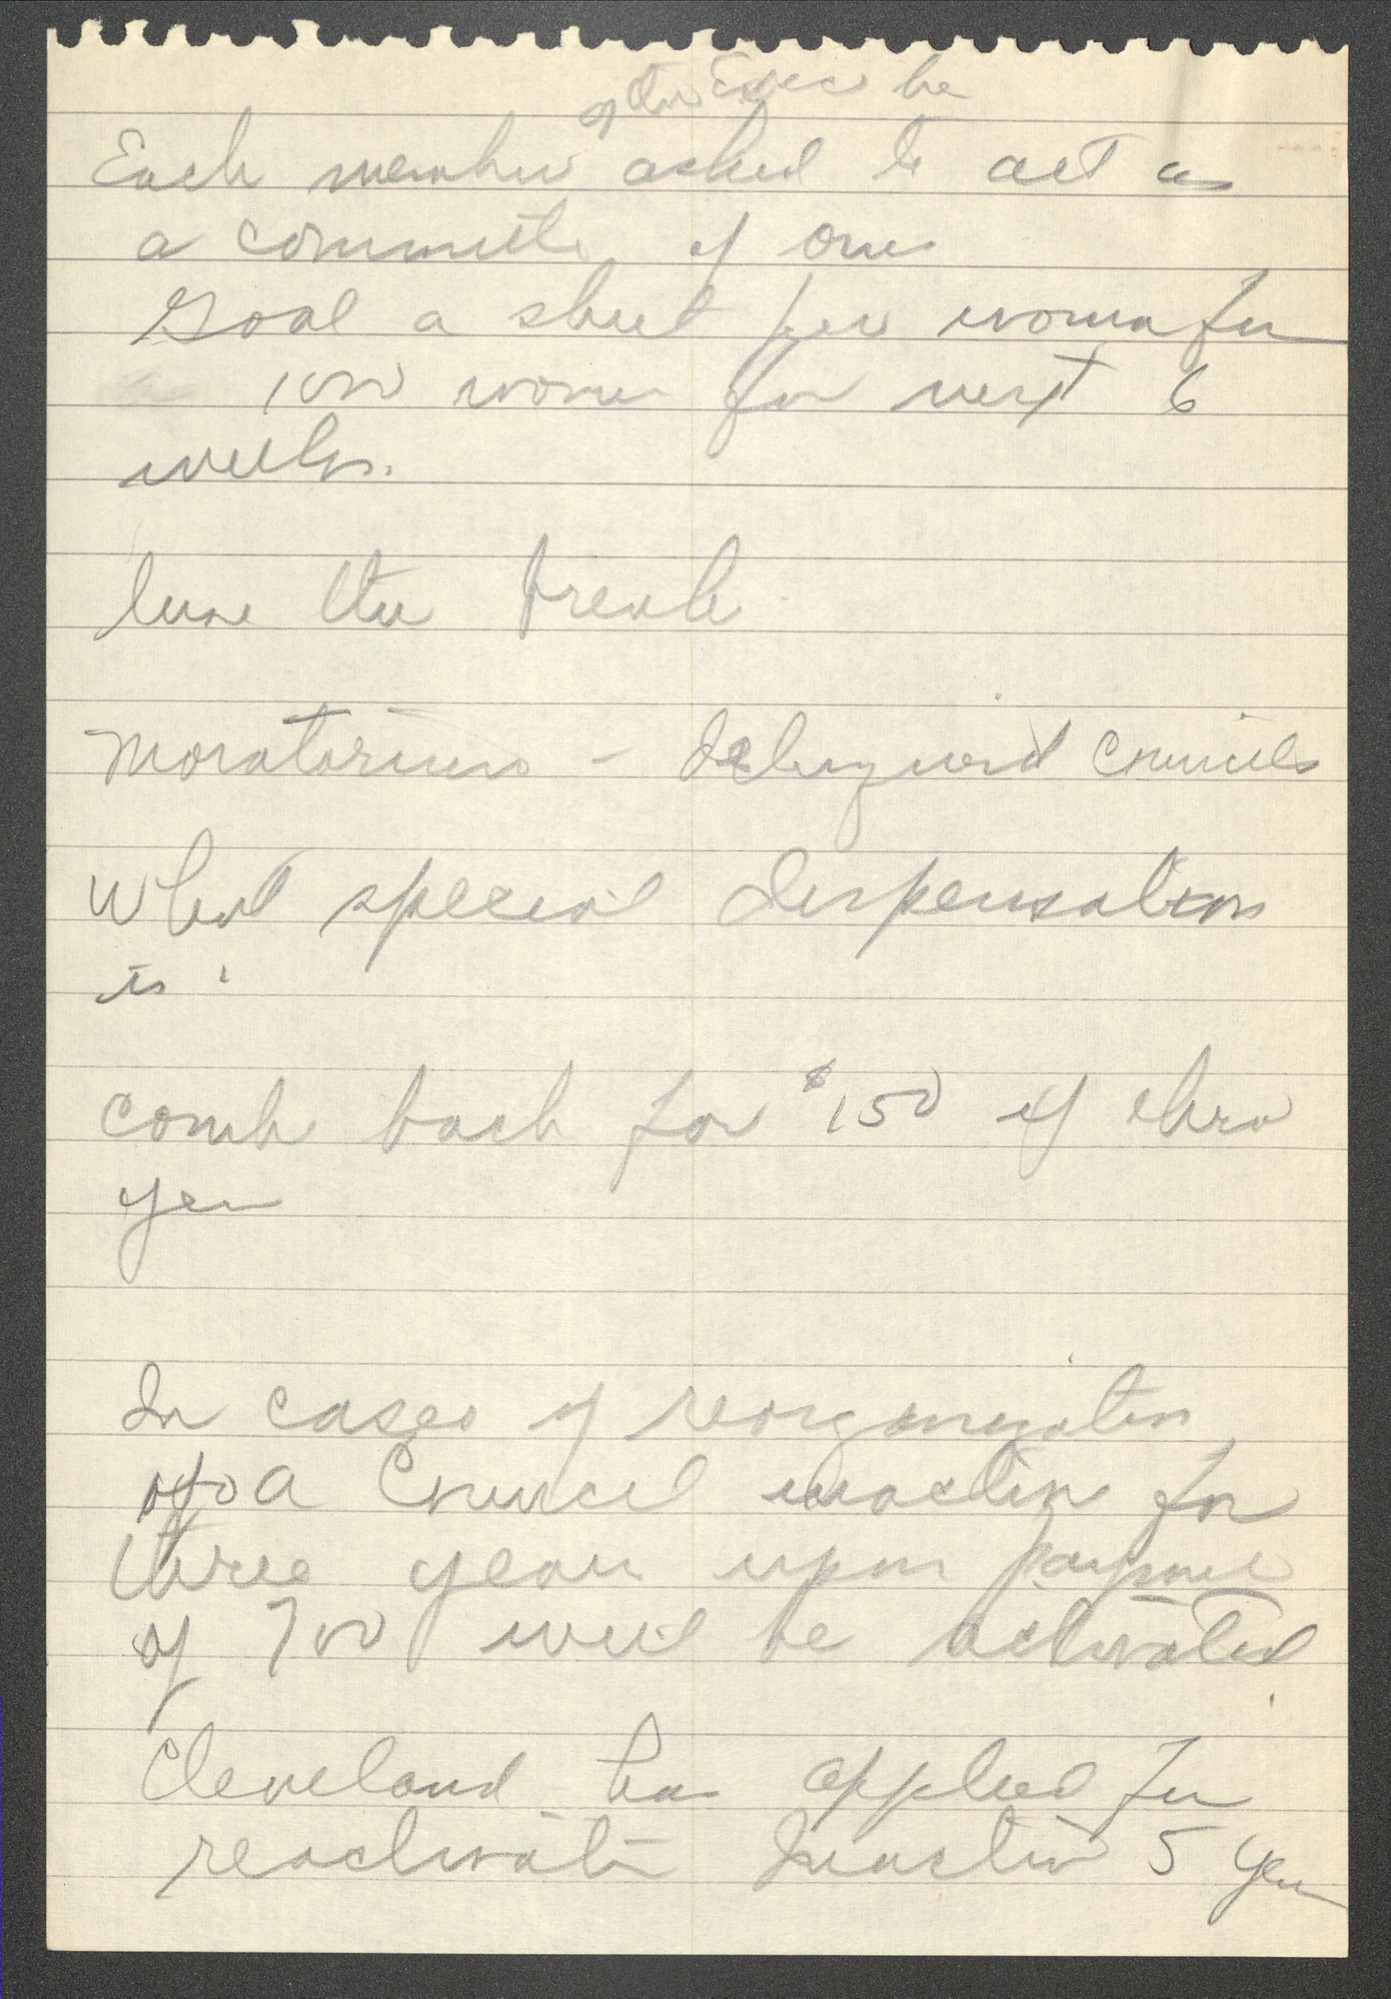 of the Exec be
Each member asked to act as
a committe of one
Goal a sheet per woman for
100 women for next 6
weeks.
the break
Moratorium - delinquent councils
What special dispensation
is
come back for $150 if
year
In cases of reorganization
of a Council inactive for
three years upon payment
of 700 will be activated
Cleveland has applied for
reactivation Inactive 5 years